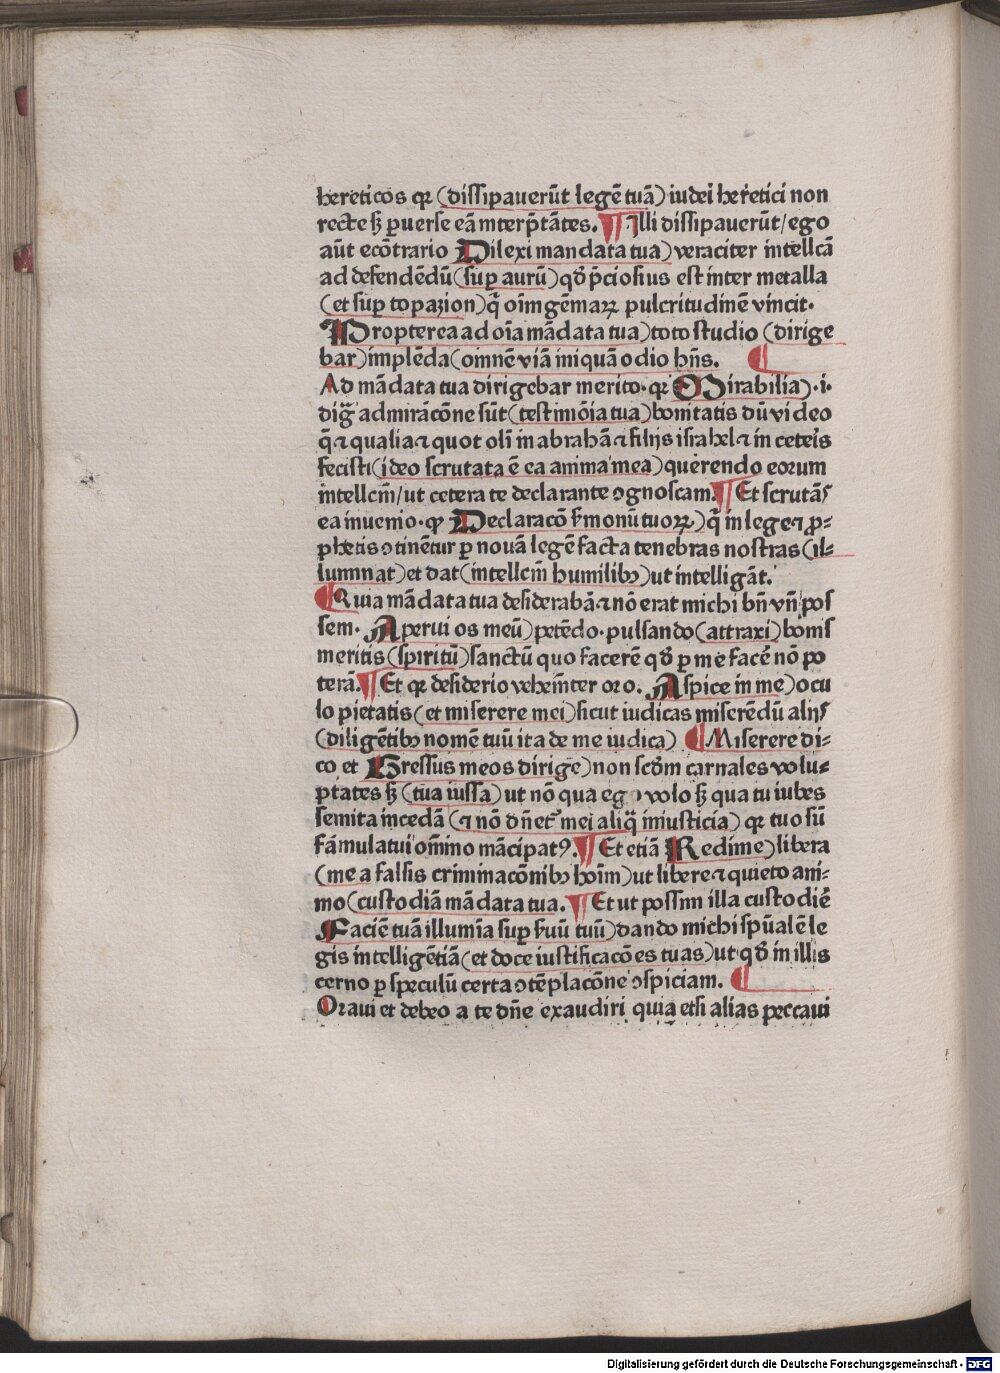 hereticos qꝛ (dissipauerūt legē tuā) iudei heretici non
recte sꝫ ꝑuerse eā interp̄tātes. ¶ Illi dissipauerūt / ego
aūt ecōtrario Dilexi mandata tua) veraciter intellcā
ad defendēdū (suꝑ aurū) qđ p̄ciosius est inter metalla
(et suꝑ topazion) q̄ oīm gēmaꝝ pulcritudinē vincit.
Propterea ad oīa mādata tua) toto studio (dirige
bar) implēda (omnē viā iniquā odio hn̄s. ¶
Ad mādata tua dirigebar merito. qꝛ Mirabilia) .i.
dig̃ admiracōne sūt (testimōia tua) bonitatis dū video
q̄ ⁊ qualia ⁊ quot olī in abrahā ⁊ filijs israhel ⁊ in ceteris
fecisti (ideo scrutata ē ea anima mea) querendo eorum
intellcm̄ / ut cetera te declarante ꝯgnoscam. ¶ Et scrutās
ea inuenio. qꝛ Declaracō s̄monū tuoꝝ) q̄ in lege ⁊ ꝓ-
phetis ꝯtinētur ꝑ nouā legē facta tenebras nostras (il-
luminat) et dat (intellcm̄ humilibꝫ) ut intelligāt.
¶ Quia mādata tua desiderabā ⁊ nō erat michi bn̄ vn̄ pos
sem. Aperui os meū) petēdo. pulsando (attraxi) bonis
meritis (spiritū) sanctū quo facerē qđ ꝑ me facē nō po
terā. ¶ Et qꝛ desiderio vehemēter oro. Aspice in me) ocu
lo pietatis (et miserere mei) sicut iudicas miserēdū alijs
(diligētibꝫ nomē tuū ita de me iudica) ¶ Miserere di-
co et Gressus meos dirige) non scđm carnales volu-
ptates sꝫ (tua iussa) ut nō qua ego volo sꝫ qua tu iubes
semita incedā (⁊ nō dn̄et mei aliq̄ iniusticia) qꝛ tuo sū
fāmulatui om̄ino mācipatꝰ. ¶ Et etiā Redime) libera
(me a falsis criminacōnibꝫ hoīm) ut libere ⁊ quieto ani-
mo (custodiā mādata tua. ¶ Et ut possim illa custodiē
Faciē tuā illumīa suꝑ s̄uū tuū) dando michi sp̄ualē le
gis intelligētiā (et doce iustificacōes tuas) ut qđ in illis
cerno ꝑ speculū certa ꝯtēplacōne ꝯspiciam. ¶
Oraui et debeo a te dn̄e exaudiri quia etsi alias peccaui
Digitalisierung gefördert durch die Deutsche Forschungsgemeinschaft - DFG